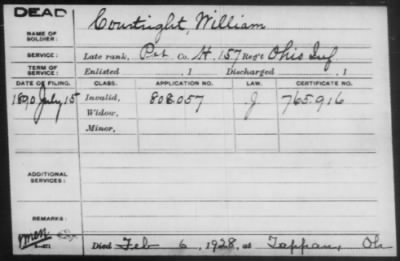 DEAD
NAME OF SOLDIER: Courtright, William
SERVICE: Late rank, Pvt Co. H, 157 Reg't Ohio Inf
TERM OF SERVICE: Enlisted , 1 Discharged , 1
DATE OF FILING. CLASS. APPLICATION NO. LAW. CERTIFICATE NO.
1890 July 15 Invalid, 808.057 J 765.916
Widow,
Minor,
ADDITIONAL SERVICES:
REMARKS:
Died Feb 6, 1928, at Tappan, Oh